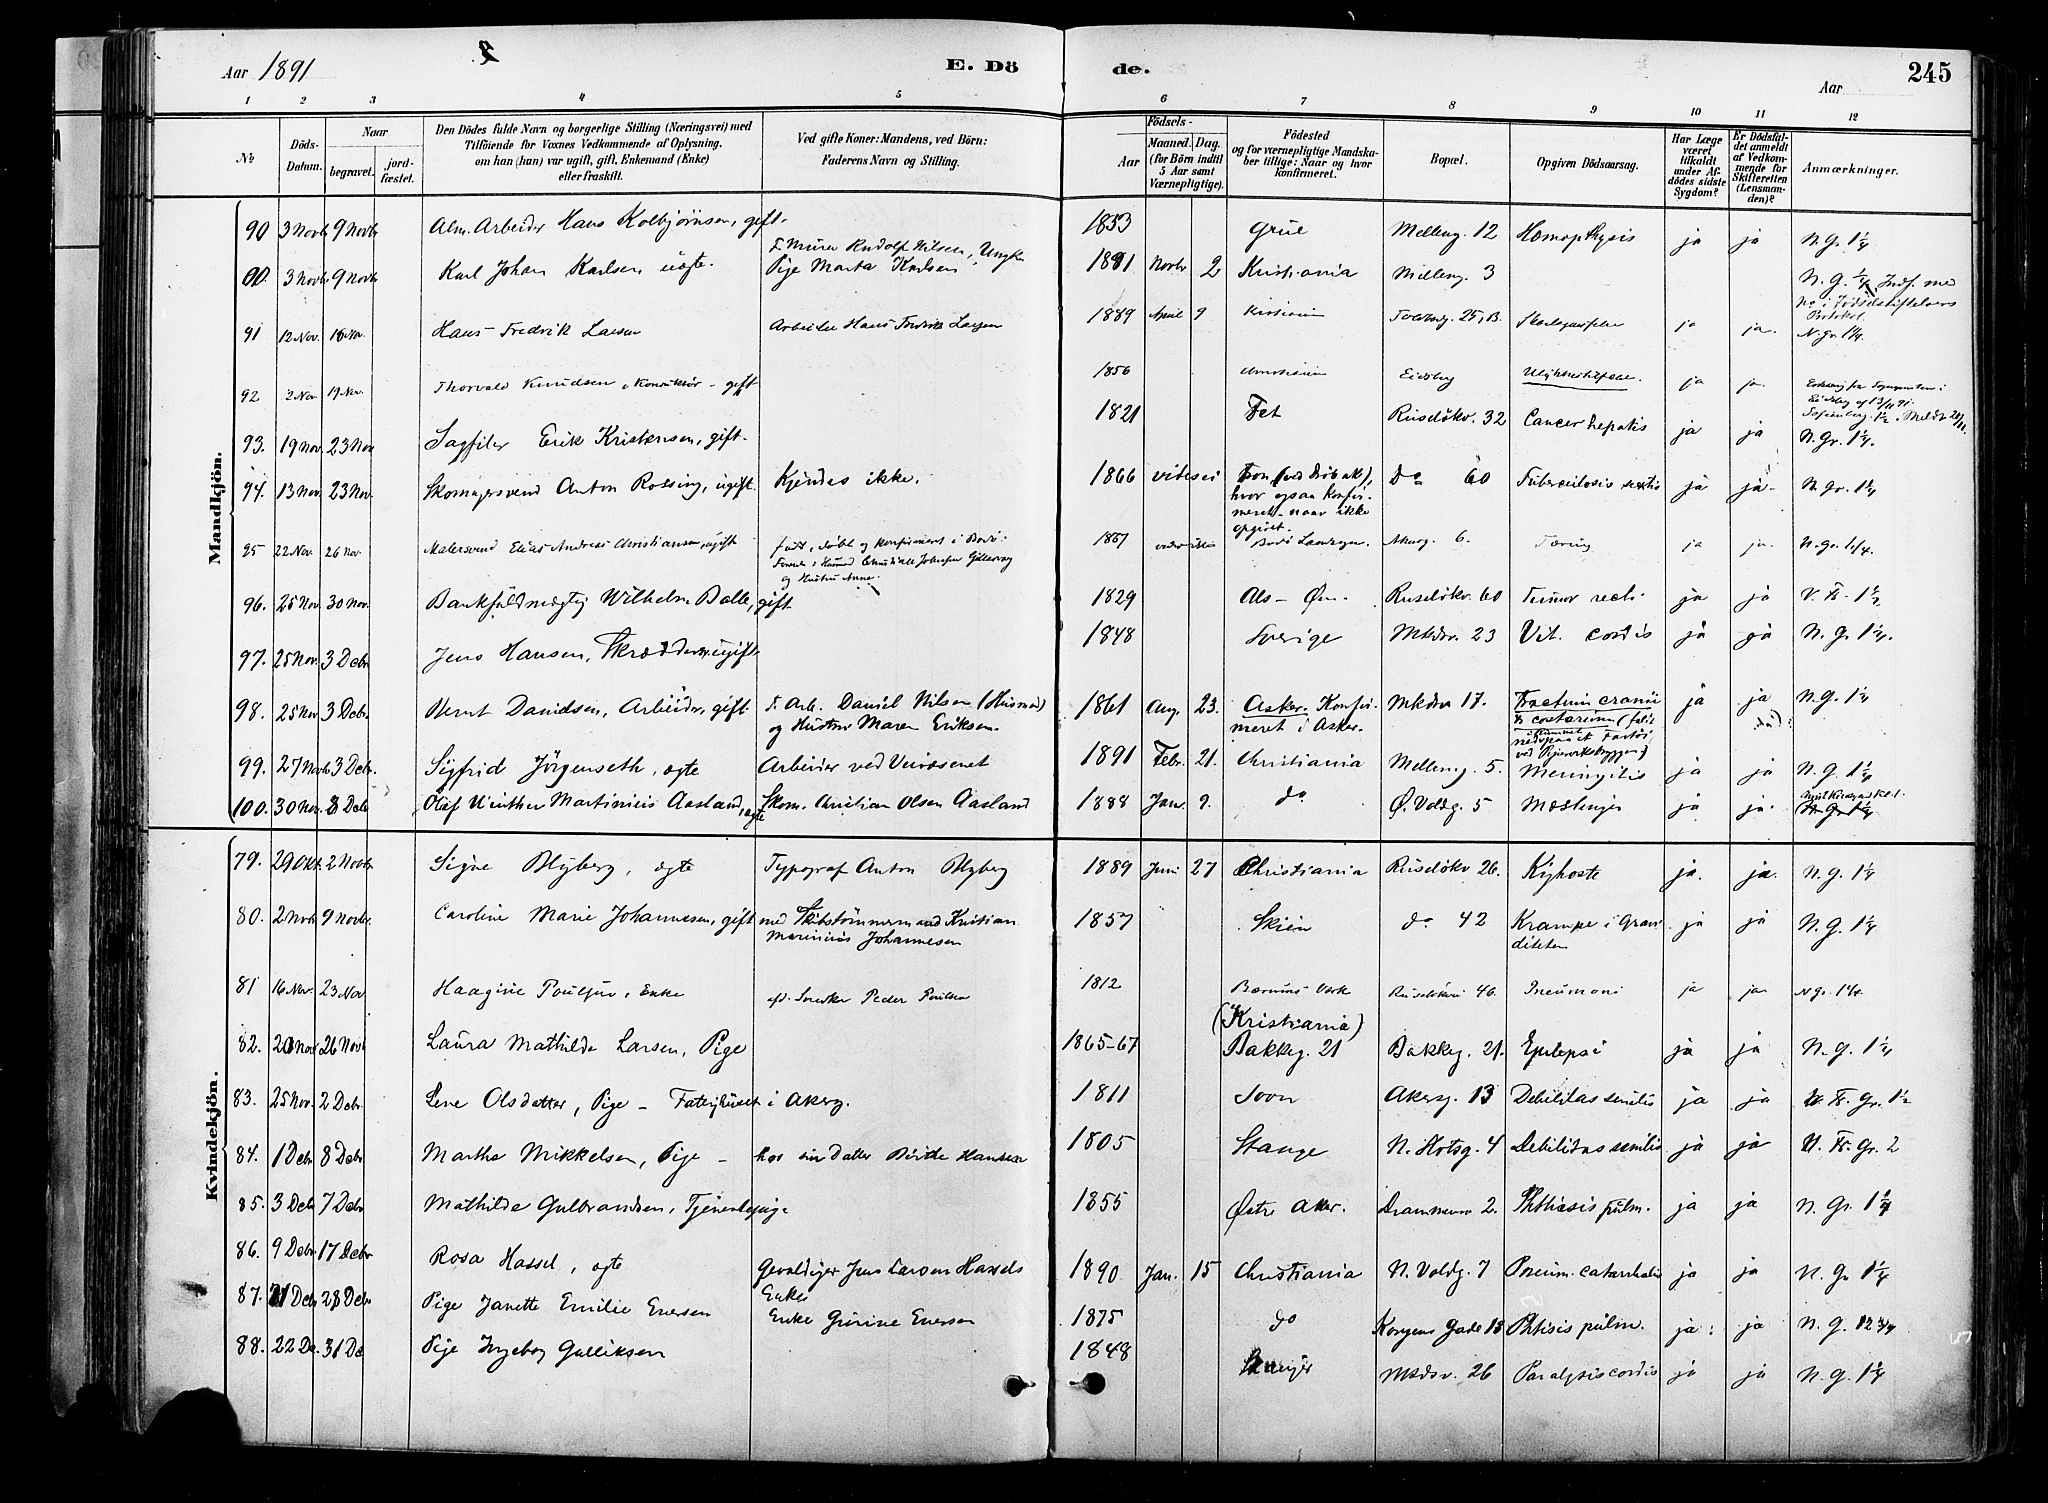 Aar 1891
E. Dö
de.
Aar
245
1 2 3 4 5 6 7 8 9 10 11 12
No
Döds-Datum.
Naar
begravet.
jord-fæstet.
Den Dödes fulde Navn og borgerlige Stilling (Næringsvei) med
Tilföiende for Voxnes Vedkommende af Oplysning,
om han (hun) var ugift, gift, Enkemand (Enke)
eller fraskilt.
Ved gifte Koner: Mandens, ved Börn:
Faderens Navn og Stilling.
Födsels-
Aar
Maaned. Dag.
(for Börn indtil
5 Aar samt
Værnepligtige).
Födested
og for værnepligtige Mandska-
ber tillige: Naar og hvor
konfirmeret.
Bopæl.
Opgiven Dödsaarsag.
Har Læge
været
tilkaldt
under Af-
dödes sidste
Sygdom?
Er Dödsfal-
det anmeldt
af Vedkom-
mende for
Skifteretten
(Lensman-
den)?
Anmærkninger.
Mandkjön.
90 3 Novbr 9 Novbr Alm. Arbeider Hans Kolbjörnsen, gift. 1853 Grue Melleng. 12 Hæmopthysis ja ja N. G. 1 1/4
00. 3 Novbr 9 Novbr Karl Johan Karlsen uægte. F. Murer Rudolf Nilsen, Ungk.
Pige Marta Karlsen 1891 Novbr 2 Kristiania Melleng. 3 N. G. 1/4 Indf. med
No i Födselsstiftelsens
Protokol
91 12 Nov. 18 Nov. Hans Fredrik Larsen Arbeider Hans Fredrik Larsen 1889 April 9 Toldbg. 25, B. ja ja. N. Gr. 1 1/4.
92 2 Nov. 19 Nov. Thorvald Knudsen, Konduktör - gift 1856 Eidsberg Ulykkestilfælde. ja ja.
Eidsberg af 13/11 91.
93. 19 Nov. 23 Nov Sagfiler Erik Kristensen, gift. 1821 Fet Ruselökv. 32 Cancer hepatis ja ja N. Gr. 1 1/4.
94. 13 Nov 23 Nov. Skomagersvend Anton Rolsing, ugift. Kjendes ikke. 1866 vides ei (ved Dröbak),
hvor ogsaa konfir-
meret - naar ikke
opgivet. Do 60 Tuberculosis ja ja N. Gr. 1 1/4
95 22 Nov. 26 Nov Malersvend Elias Andreas Christiansen, ugift födt, döbt og konfirmeret i Bodö.
og Hustru Anne. 6. Tæring ja ja. N. Gr. 1 1/4.
96. 25 Nov 30 Nov. Bankfuldmægtig Wilhelm Balle, gift 1829 Als - Ön. Ruselökv. 60 Tumor recti ja ja V. Fr. 1 1/2
97. 25 Nov. 3 Debr Jens Hansen, Skrædders. ugift 1848 Sverige Mkdsv. 23 Vit. cordis ja ja N. G. 1 1/4.
98. 25 Nov 3 Debr. Bernt Davidsen, Arbeider, gift. F. Arb. Daniel Nilsen (Husmd)
og Hustru Maren Eriksen. 1861 Aug. 23. Asker. Konfir-
meret i Asker. Mkdsv 17. Fractura cranii
& costarum (falt
ja ja N. G. 1 1/4
99. 27 Novbr 3 Debr. Sigfrid Jörgenseth, ægte Arbeider ved Veivæsenet 1891 Febr. 21. Christiania Melleng. 5. Meningitis ja ja N. G. 1 1/4
100. 30 Nov. 8 Debr Olaf Winther Martinius Aasland, ægte Skom. Christian Olsen Aasland 1888 Jan. 9. do Ö. Voldg. 5 Mæslinger ja ja. N. Gr. 1 1/4
Kvindekjön.
79. 29 Okt. 2 Novbr Signe Myberg, ægte Typograf Anton Myberg 1889 Juni 27 Christiania Ruselökv 26. Kighoste ja. ja. N. G. 1 1/4
80. 2 Novbr 9 Novbr. Caroline Marie Johannesen, gift med Skibstömmermand Kristian
Marinius Johannesen 1857 Skien do 42 Krampe i Gravi-
diteten ja ja N. G. 1 1/4
81 16 Nov. 23 Nov Haagine Poulsen, Enke eft. Snedker Peder Poulsen 1812 Bærums Værk Ruselökv. 46. Pneumoni ja ja N Gr. 1 1/4.
82. 20 Nov 26 Novbr Laura Mathilde Larsen, Pige 1865-67 (Kristiania)
Bakkeg. 21 Bakkeg. 21. Epilepsi ja ja N. G. 1 1/4
83. 25 Nov. 2 Debr Lene Olsdatter, Pige - Fattighuset i Akerg. 1811 Akersg. 13 Debilitas senilis ja ja V. Fr. Gr. 1 1/2
84. 1 Debr 8 Debr Marthe Mikkelsen, Pige - hos sin Datter Birthe Hansen 1805 Stange N. Slotsg. 4 Debilitas senilis ja ja V. Fr. Gr. 2
85. 3 Debr 7 Debr Mathilde Gulbrandsen, Tjenestepige 1855 Östre Aker. Drammensv 2. Phthisis pulm. ja ja N. Gr. 1 1/4
86. 9 Debr. 17 Debr Rosa Hassel, ægte Gevaldiger Jens Larsen Hassels
Enke 1890 Jan. 15 Christiania N. Voldg. 7 Pneum. catarrhalis ja ja N. Gr 1 1/4
87. 21 Debr 28 Debr Pige Janette Emilie Eversen Enke Gurine Eversen 1875 do Kongens Gade 13 Phtisis pulm. ja ja N. G. 12 3/4
88. 22 De. 31 De Pige Ingeborg Gulliksen 1848 Mkdsv. 26 Paralysis cordis ja ja N. G. 1 1/4